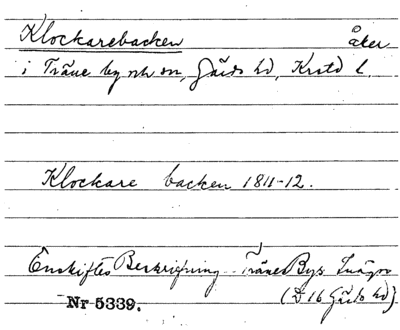 Klockarebacken åker
i Träne by och sn, Gärds hd, Krstd l.
Klockare backen 1811-12.
Enskiftes Beskrifning Träne Bys
(D 16 Gärds hd)
Nr 5339.